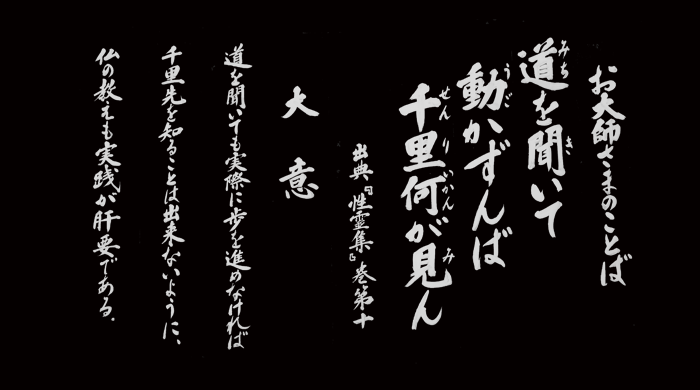 お大師さまのことば
道を聞いて
動かずんば
千里何が見ん
出典『性霊集』巻第十
大意
道を聞いても実際に歩を進めなければ
千里先を知ることは出来ないように、
仏の教えも実践が肝要である。